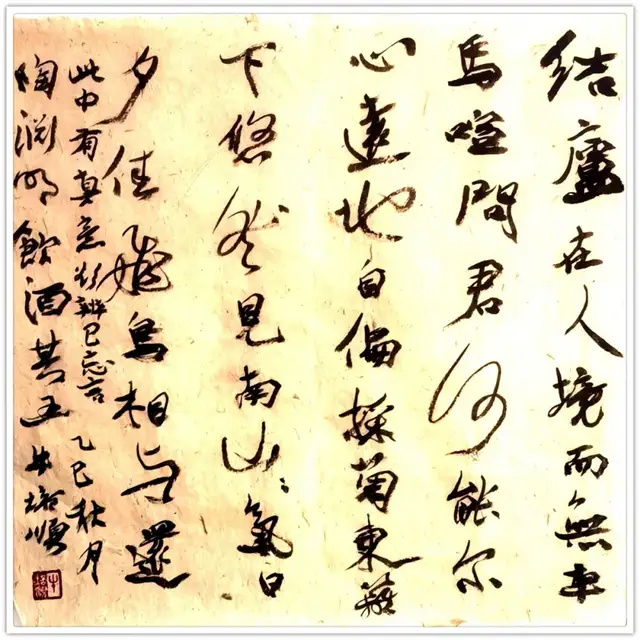 结廬在人境而無車
馬喧問君何能尔
心遠地自偏採菊東籬
下悠然見南山〻氣日
夕佳飛鳥相与還
此中有真意欲辨已忘言 乙巳秋月
陶渊明飲酒其五 牛培順